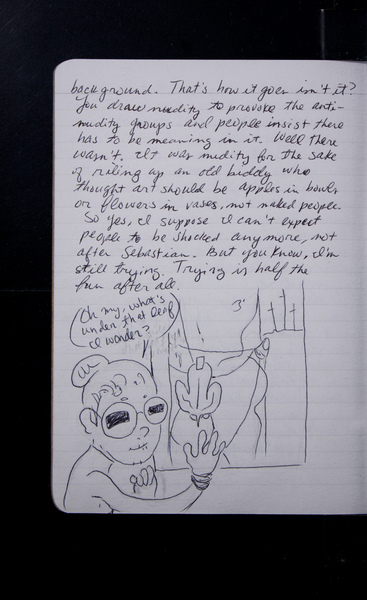 background. That's how it goes isn't it?
You draw nudity to provoke the anti-
nudity groups and people insist there
has to be meaning in it. Well there
wasn't. It was nudity for the sake
of riling up an old biddy who
thought art should be apples in bowls
or flowers in vases, not naked people.
So yes, I suppose I can't expect
people to be shocked anymore, not
after Sebastian. But you know, I'm
still trying. Trying is half the
fun after all.
Oh my, what's
under that leaf
I wonder?
3'